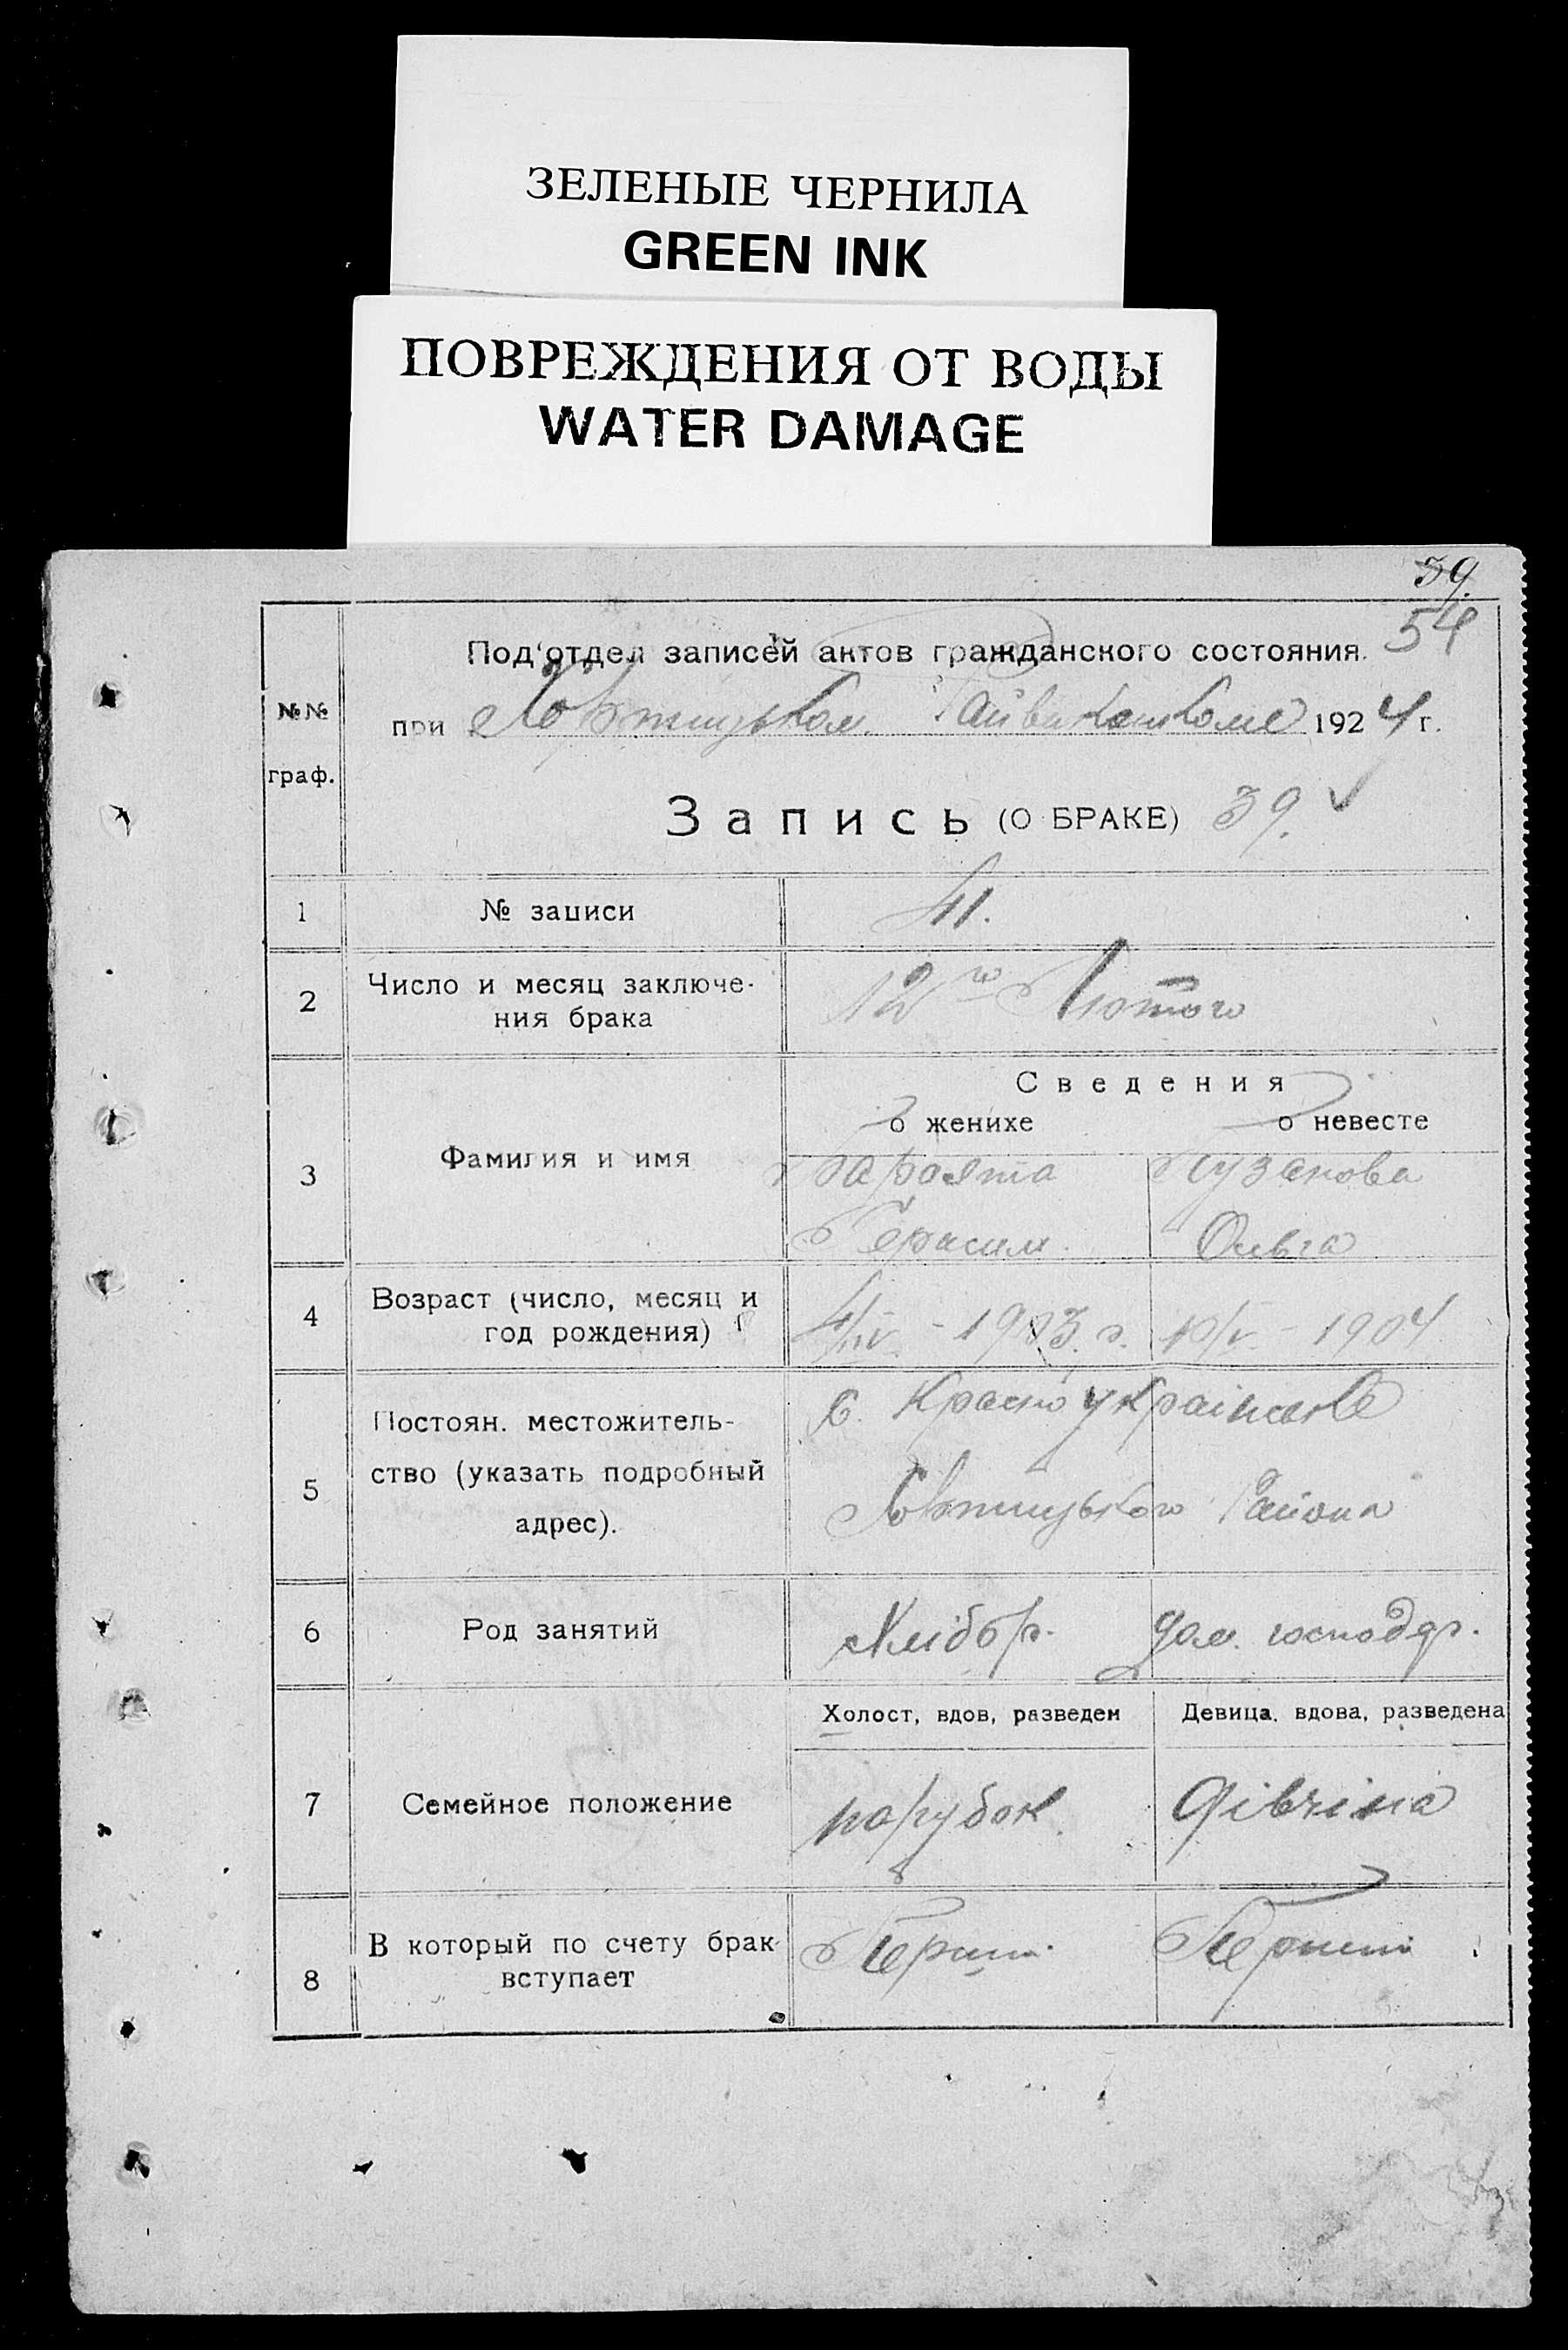 ЗЕЛЕНЫЕ ЧЕРНИЛА
GREEN INK
ПОВРЕЖДЕНИЯ ОТ ВОДЫ
WATER DAMAGE
39.
54
Под'отдел записей актов гражданского состояния.
№№ граф.
при Хортицьком. Райвиконкоме 1924 г.
Запись (О БРАКЕ) 39.
1 № записи 41.
2 Число и месяц заключе-
ния брака 12го Лютого
Сведения
о женихе о невесте
3 Фамилия и имя Пузанова
Герасим. Ольга
4 Возраст (число, месяц и
год рождения) 4/IV - 1903 г. 10/V - 1904
5 Постоян. местожитель-
ство (указать подробный
адрес).
с.
Хортицького Района
6 Род занятий Хлібор. дом. господар.
Холост, вдов, разведен Девица, вдова, разведена
7 Семейное положение парубок. дівчина
8 В который по счету брак
вступает Перший Перший